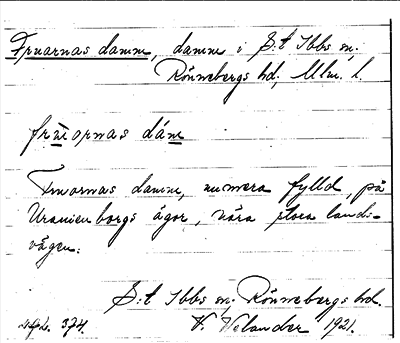 Fruarnas damm, damm i S:t Ibbs sn.
Rönnebergs hd, Mlm. l.
frúeọrnas dám
Fruarnas damm, numera fylld, på
Uranienborgs ägor, nära stora lands-
vägen.
S:t Ibbs sn, Rönnebergs hd.
374 V. Velander 1921.